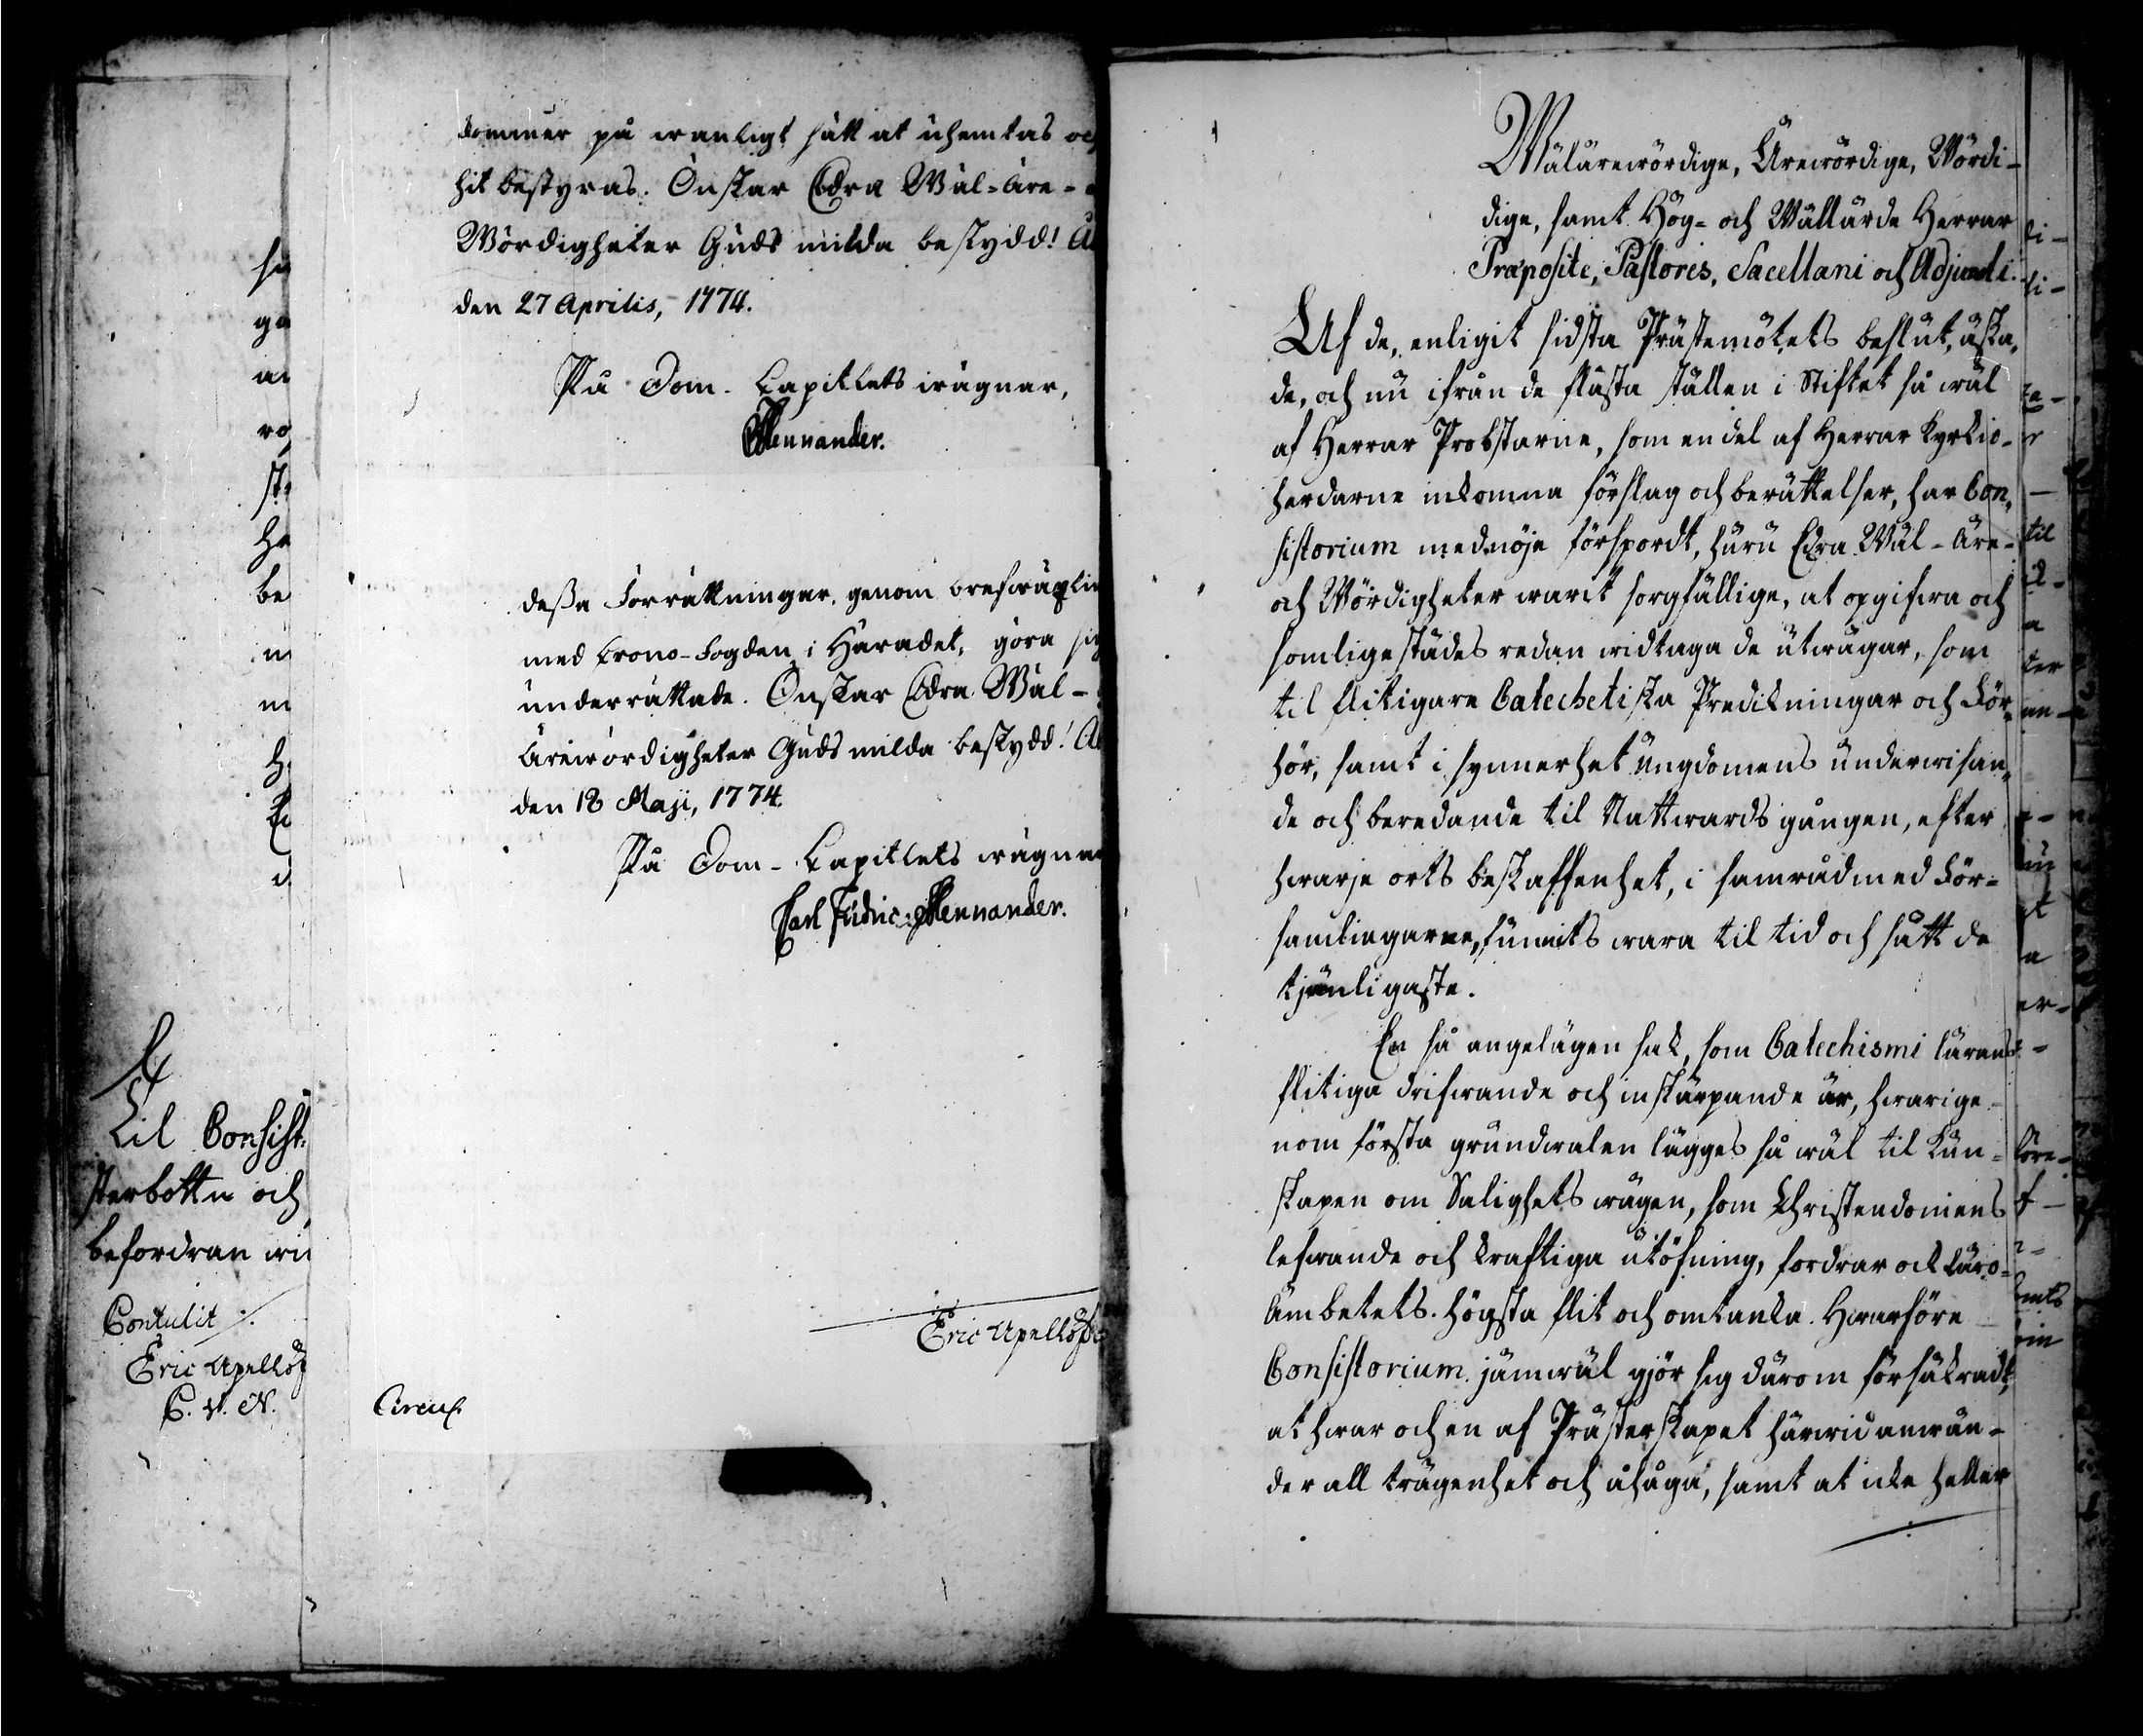 kommer på wanligt sätt at ihemtas och
hit bestyras. Önskar Edra Wäl-Äre-
Wördigheter Guds milda beskydd!
den 27 Aprilis, 1774.
På Dom-Capitlets wägnar,
Mennander.
dessa Förrättningar, genom brefwäxlin
med Krono-Fogden i Häradet, göra sig
underrättade. Önskar Edra Wäl-
Ärewördigheter Guds milda beskydd!
den 18 Maji, 1774.
På Dom-Capitlets wägnar
Carl Fridric Mennander.
Eric Apellöf
Circul.
Til Consist.
sterbottn och
befordran
Contulit
Eric Apellöf
C. V. N.
Wälärewördige, Ärewördige, Wördi-
dige, samt Hög- och Wällärde Herrar
Præposite, Pastores, Sacellani och Adjuncti.
Af de, enligit sidsta Prästemötets beslut, äska,
de, och nu ifrån de flästa ställen i Stiftet så wäl
af Herrar Probstarne, som en del af Herrar Kyrkio-
herdarne inkomna förslag och berättelser, har Con,
sistorium med nöje förspordt, huru Edra Wäl-Äre-
och Wördigheter warit sorgfällige, at opgifwa och
somligestädes redan widtaga de utwägar, som
til flitigare Catechetiska Predikningar och För,
hör, samt i synnerhet Ungdomens underwisan,
de och beredande til Nattwards gången, efter
hwarje orts beskaffenhet, i samråd med För-
samlingarne, funnits wara til tid och sätt de
tjänligaste.
En så angelägen sak, som Catechismi lärans
flitiga drifwande och inskärpande är, hwarige-
nom första grundwalen lägges så wäl til Kun-
skapen om Salighets wägen, som Christendomens
lefwande och kraftiga utöfning, fordrar ock Läro-
Ämbetets högsta flit och omtanka. Hwarföre
Consistorium jämwäl gjör sig därom försäkradt,
at hwar och en af Prästerskapet härwid anwän-
der all trägenhet och åhåga, samt at icke heller